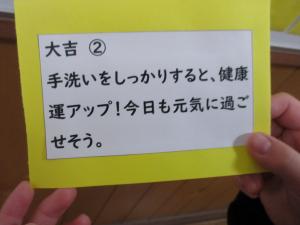 大吉 ②
手洗いをしっかりすると、健康
運アップ！今日も元気に過ご
せそう。